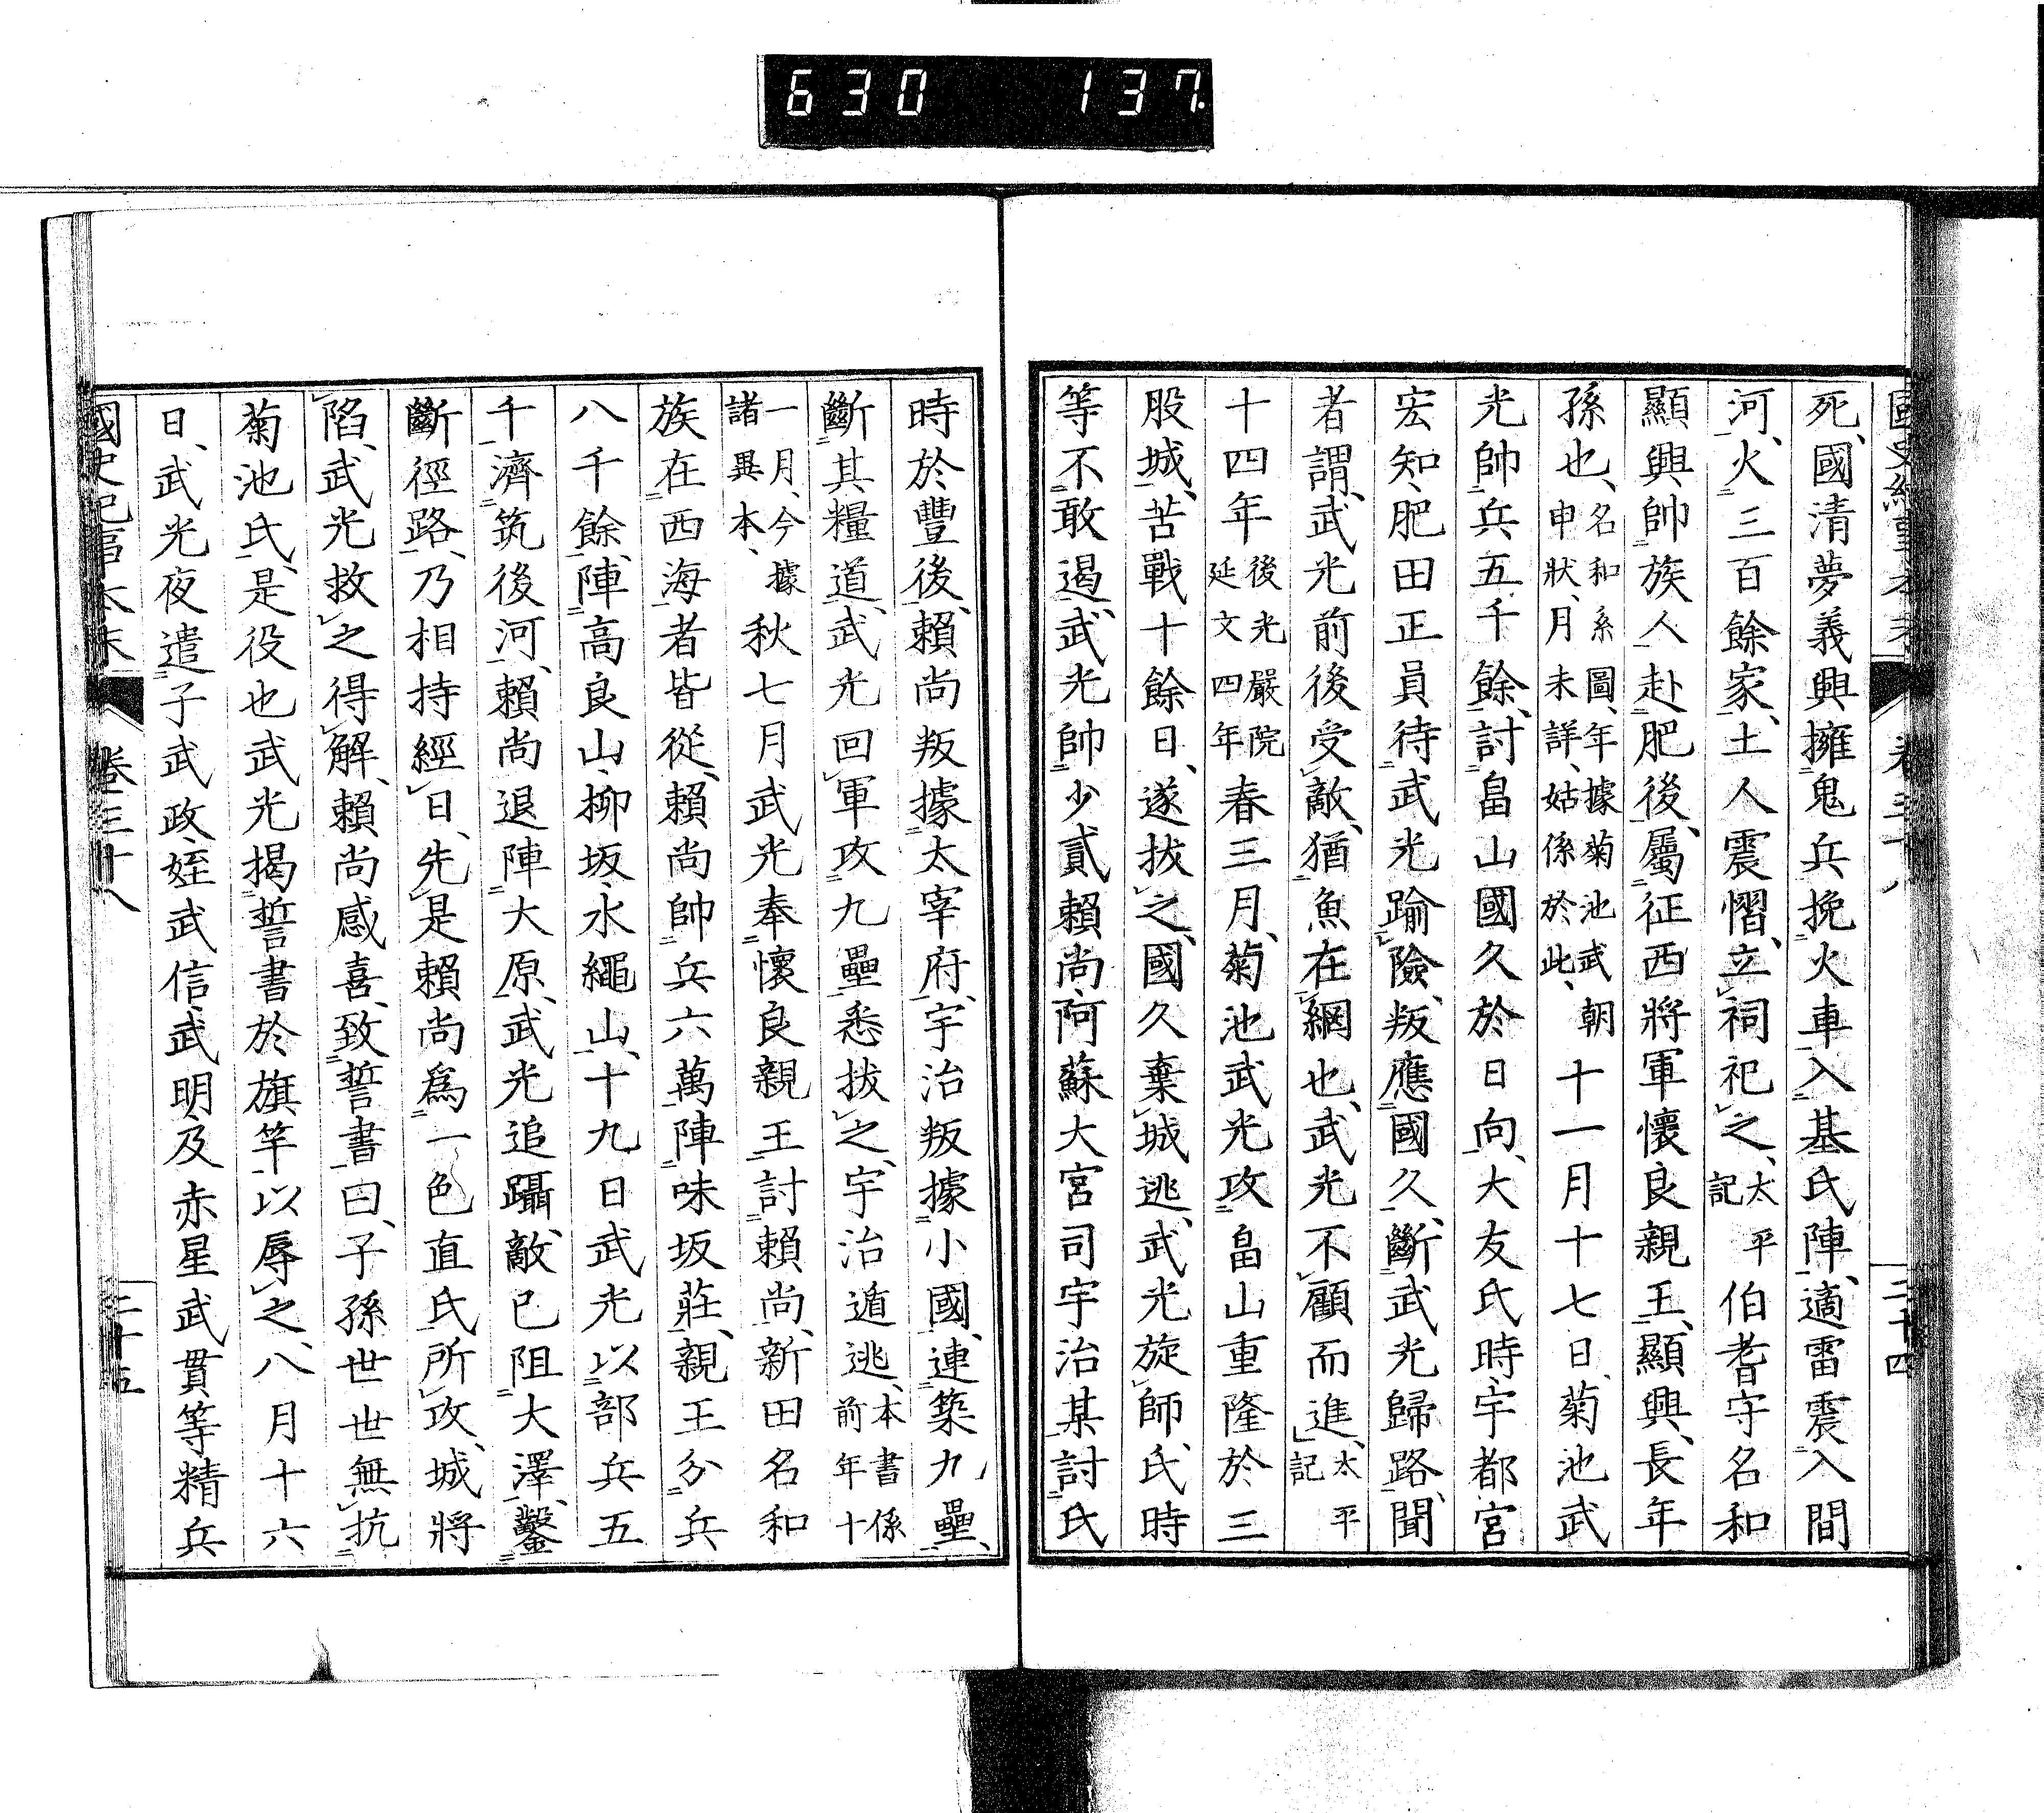 630 137
國史紀事本末 卷三十八 二十四
死、國清夢義興擁鬼兵挽火車入基氏陣、適雷震入間
河、火三百餘家、土人震慴、立祠祀之、太平記 伯耆守名和
顯興帥族人赴肥後、屬征西將軍懷良親王、顯興、長年
孫也、名和系圖、年據菊池武朝申狀、月未詳、姑係於此、 十一月十七日、菊池武
光帥兵五千餘、討畠山國久於日向、大友氏時、宇都宮
宏知、肥田正員待武光踰險、叛應國久、斷武光歸路、聞
者謂、武光前後受敵、猶魚在網也、武光不顧而進、太平記
十四年後光嚴院延文四年春三月、菊池武光攻畠山重隆於三
股城、苦戰十餘日、遂拔之、國久棄城逃、武光旋師、氏時
等不敢遏、武光帥少貳賴尚、阿蘇大宮司宇治某討氏
時於豐後、賴尚叛據太宰府、宇治叛據小國、連築九壘、
斷其糧道、武光回軍攻九壘、悉拔之、宇治遁逃、本書係前年十
一月、今據諸異本、秋七月武光奉懷良親王討賴尚、新田名和
族在西海者皆從、賴尚帥兵六萬陣味坂莊、親王分兵
八千餘、陣高良山、柳坂、水繩山、十九日武光以部兵五
千濟筑後河、賴尚退陣大原、武光追躡、敵已阻大澤、鑿
斷徑路、乃相持經日、先是賴尚爲一色直氏所攻、城將
陷、武光救之得解、賴尚感喜、致誓書曰、子孫世世無抗
菊池氏、是役也武光揭誓書於旗竿以辱之、八月十六
日、武光夜遣子武政、姪武信、武明及赤星武貫等精兵
國史紀事本末 卷三十八 二十五